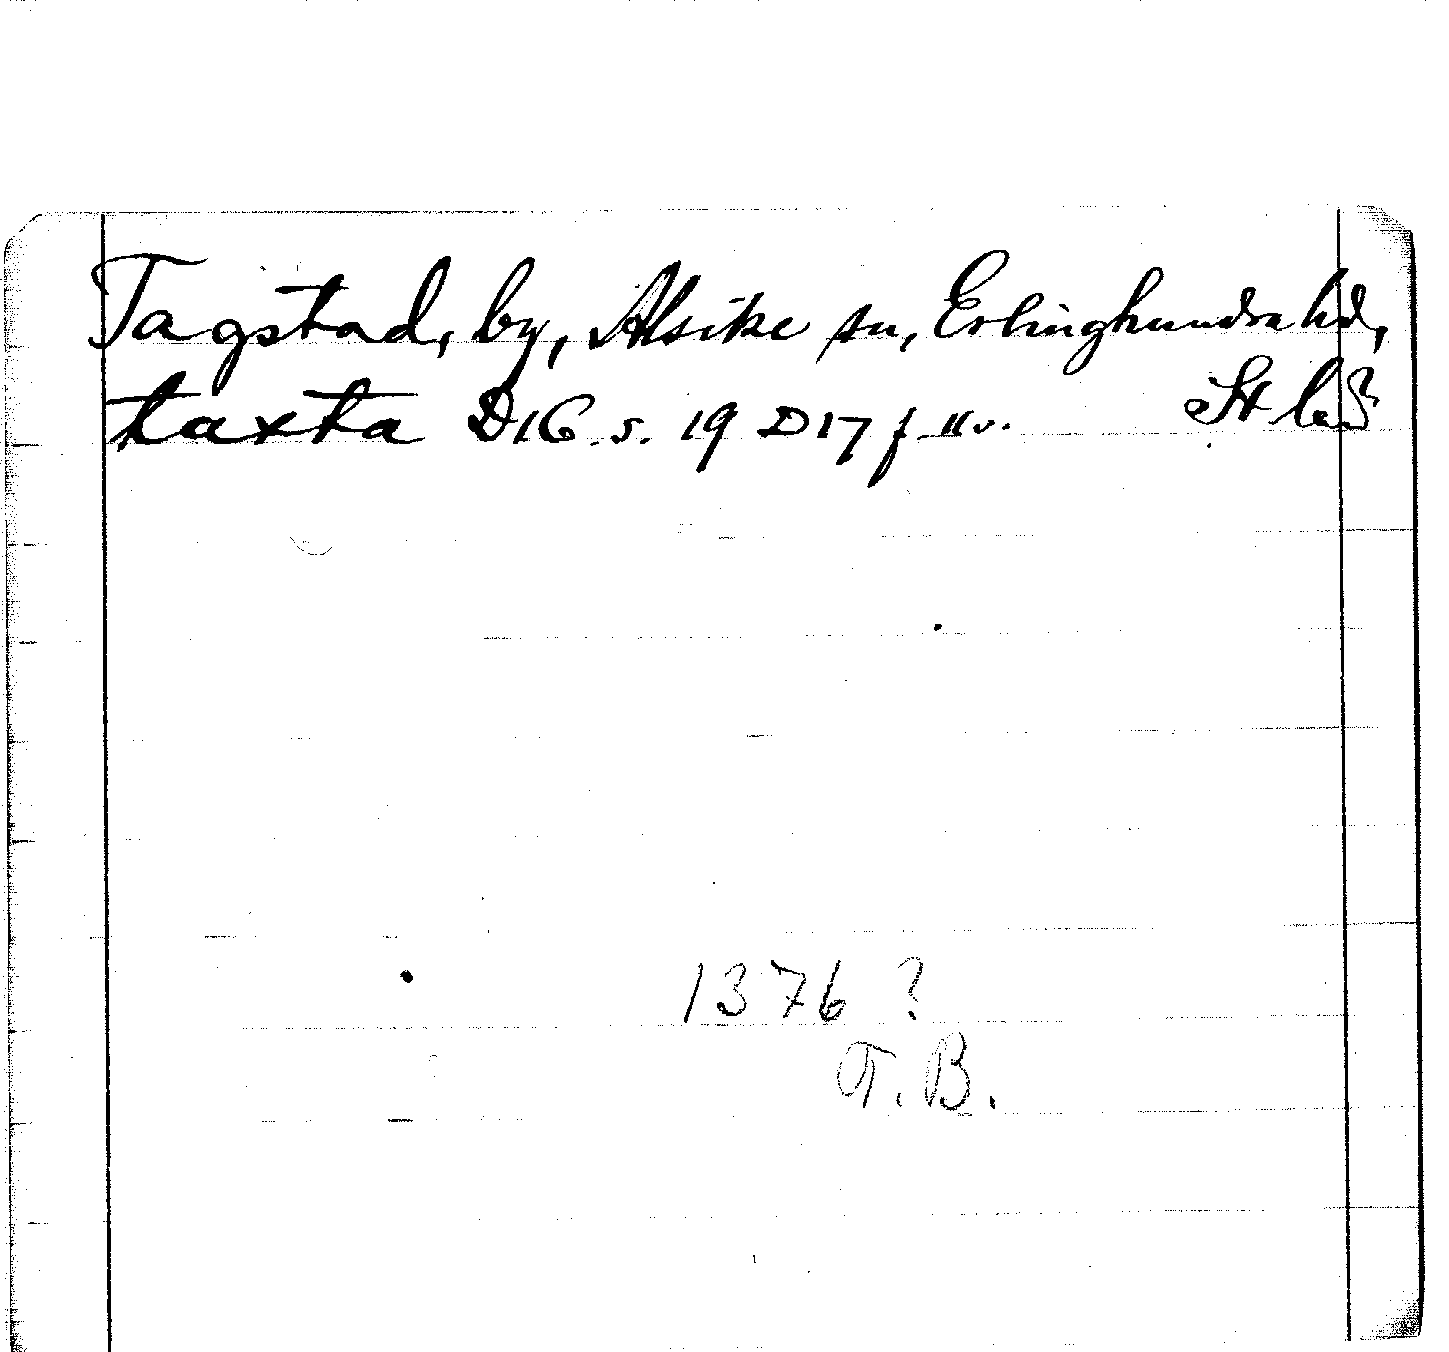 Tagstad, by, Alsike sn, Erlinghundra hd,
taxta D16 s. 19 D17 f. 11 v. St l.
1376 ?
T. B.